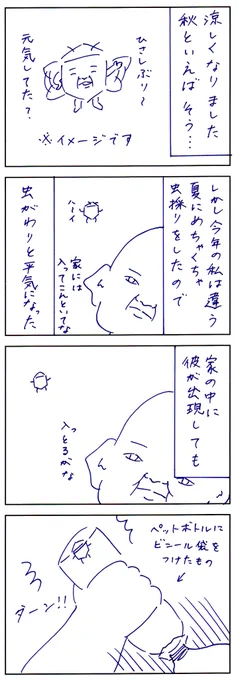 涼しくなりました
秋といえばそう…
ひさしぶり~
元気してた?
※イメージです
しかし今年の私は違う
夏にめちゃくちゃ
虫採りをしたので
ハーイ
家には
入ってこんといてな
虫がわりと平気になった
家の中に
彼が出現しても
入っとるがな
ペットボトルに
ビニール袋を
つけたもの
ダーン!!